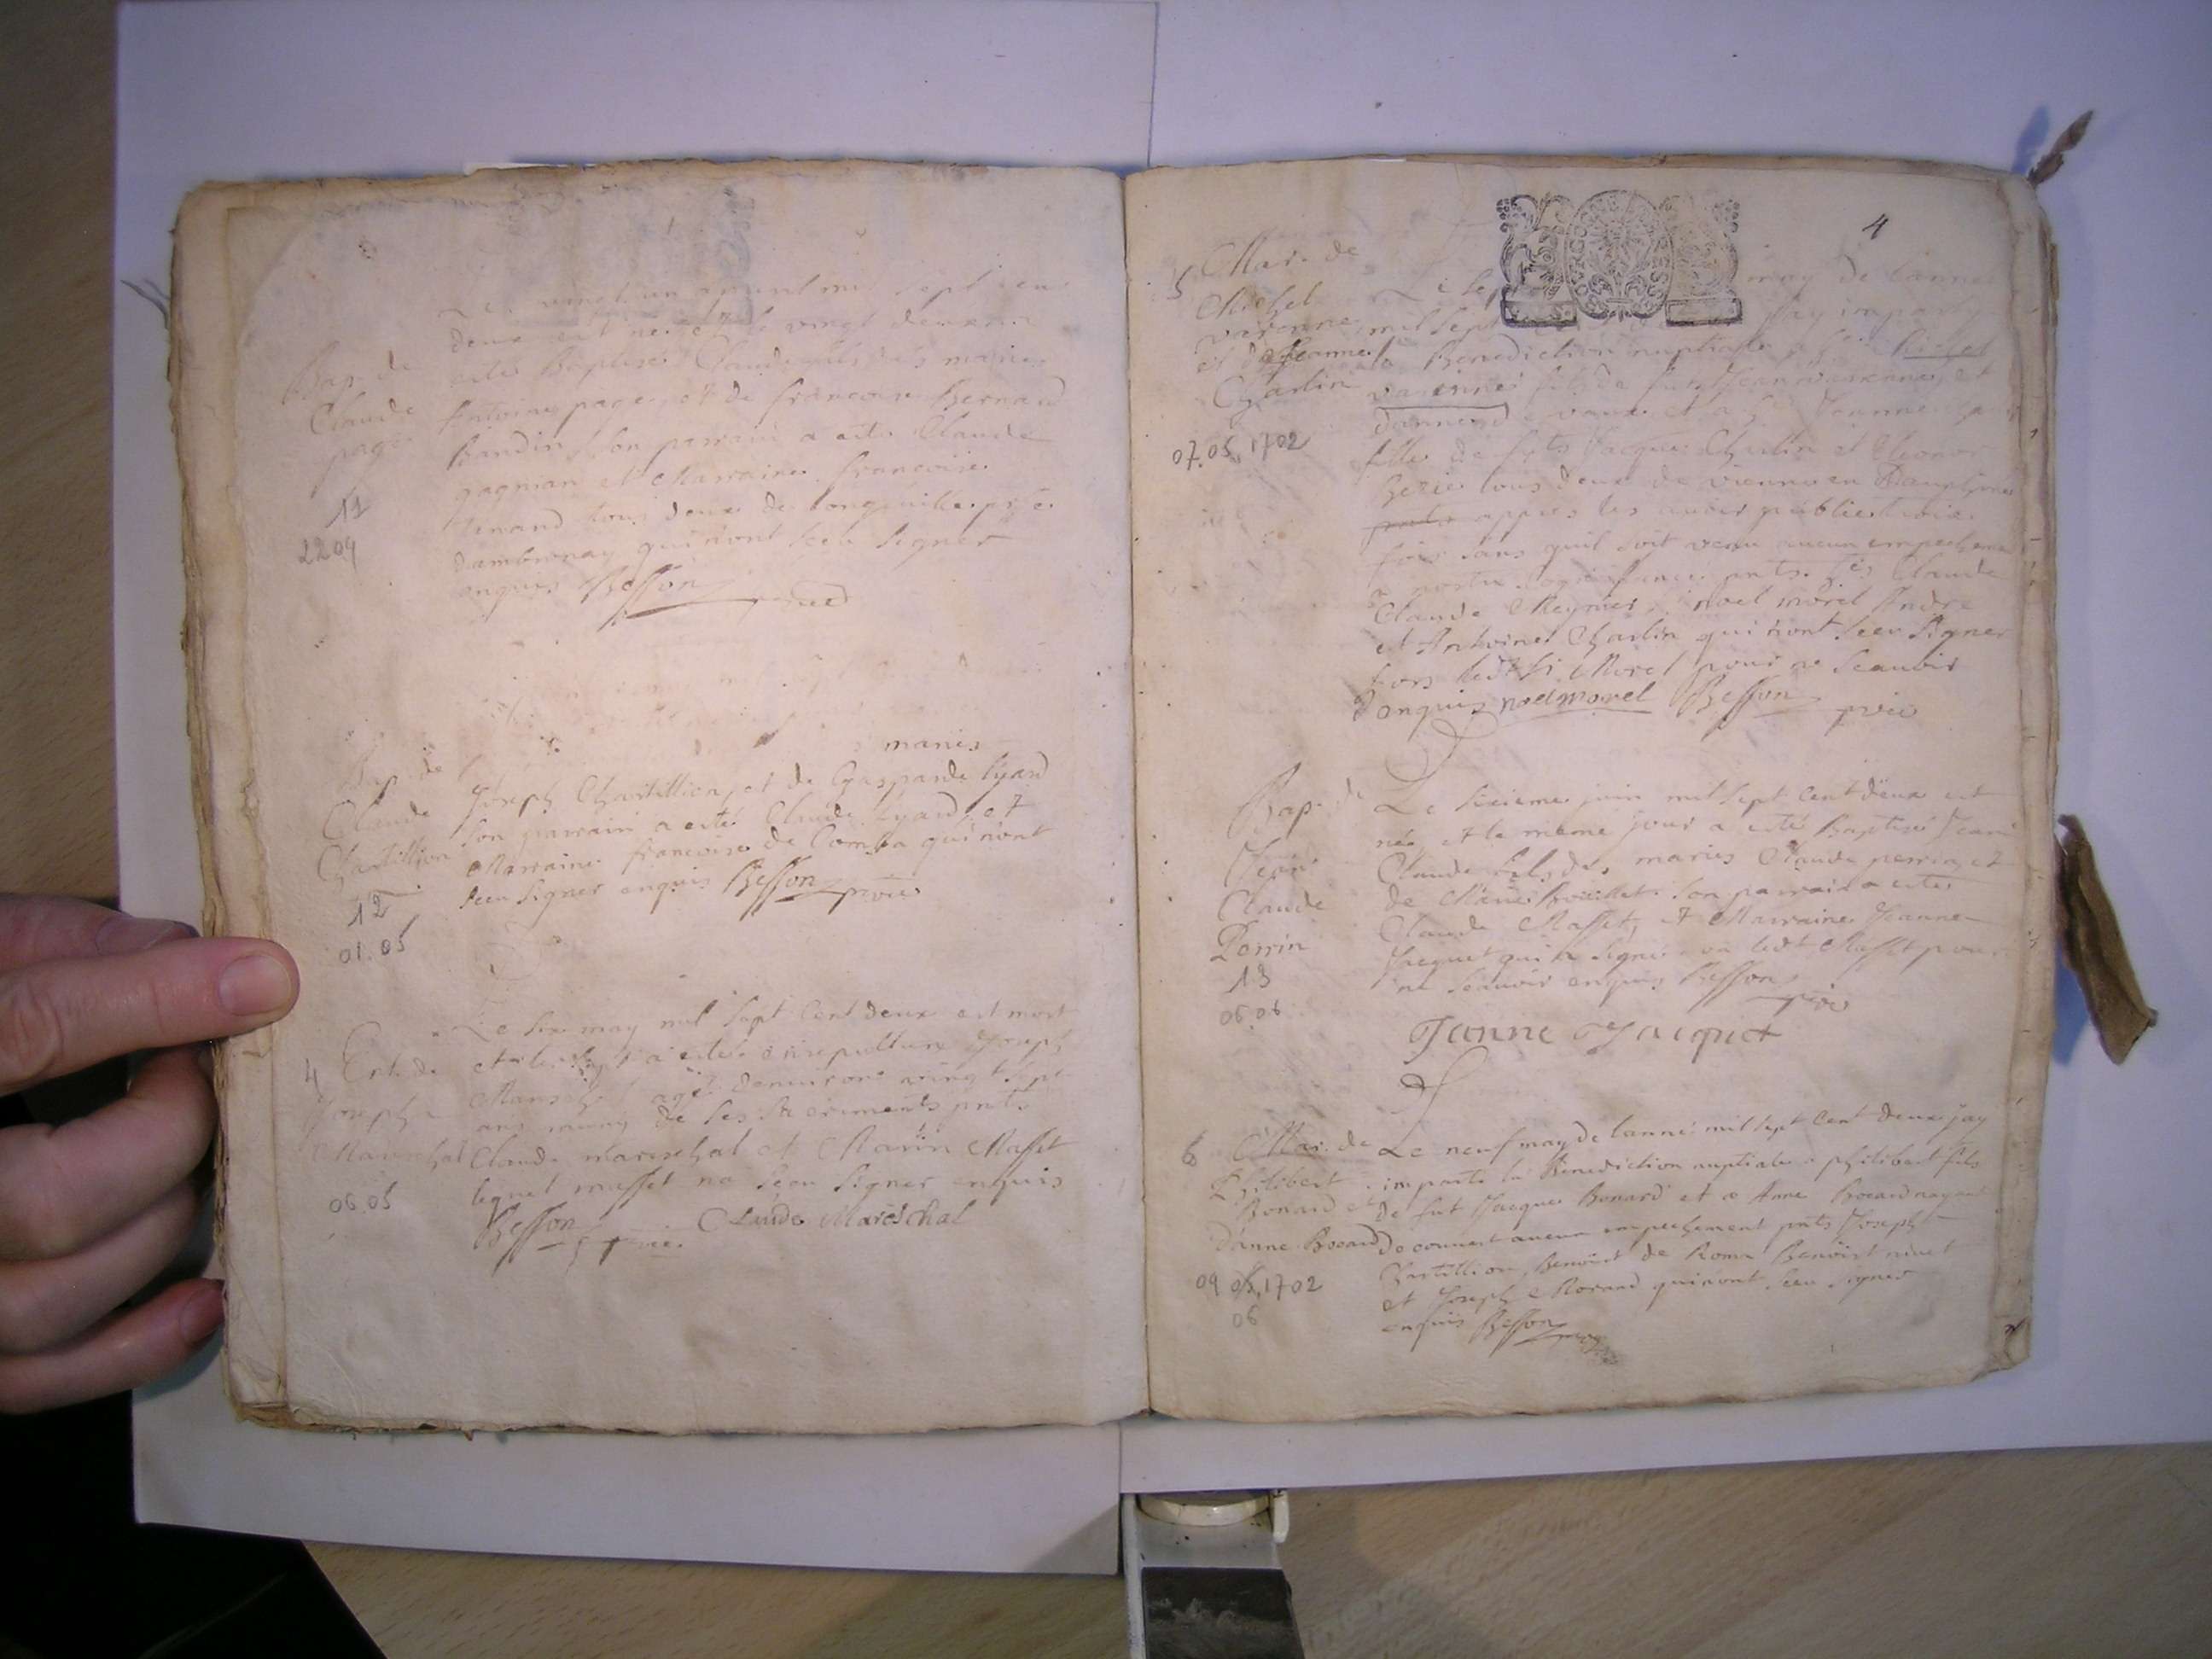 Bap. de
Claude
page
11
22 04
Le vingt un apvril mil sept cens
deux est né et le vingt deux a
esté Baptisé Claude fils des maries
Antoine page et de francoise Bernard
Baudin son parrain a esté Claude
gagnian et Marraine francoise
tenand tous deux de longeville psse
dambronay qui nont sceu signer
enquis Besson
Bap. de
Claude
Chastillion
12
01.05
maries
Joseph Chastillion et de Gasparde lyard
son parrain a esté Claude lyard et
Marraine francoise de Comba qui nont
sceu signer enquis Besson
4 Ent. de
Joseph
Mareschal
06.05
Le six may mil sept cent deux est mort
et le sept a esté ensepulturé Joseph
Mareschal agé denviron vingt sept
ans muny de ses sacrements pnts
Claude mareschal et Marin Masset
lequel masset na sceu signer enquis
Besson Claude Mareschal
4
5 Mar. de
Michel
varenne
et de Jeanne
Charlin
07.05.1702
Le sep may de lannee
mil sept jay impar
la Benediction nuptiale a Michel
varenne fils de fut Jean varenne et
danne de vaux et a Jeanne
fille de futs Jacque Charlin et Eleonor
tous deux de vienne en Dauphine
appres les avoir publie trois
fois sans quil soit venu aucun empecheme
a notre cognoissance pnts Claude
Claude Meynier noel morel Andre
et Antoine Charlin qui nont sceu signer
fors ledt Sr Morel pour ne scauoir
enquis noel morel Besson
Bap. de
Jean
Claude
Perrin
13
06.06
Le sixieme juin mil sept cent deux est
né et le meme jour a esté Baptisé Jean
Claude fils des maries Claude perrin et
de Marie son parrain a esté
Claude Masset et Marraine Jeanne
Jacquet qui a signé non ledt Masset pour
ne scauoir enquis Besson
Janne Jacquet
6 Mar. de
Philibert
Bonard et
danne Bocard
09 05.1702
06
Le neuf may de lanné mil sept cent deux jay
imparti la Benediction nuptiale a philibert fils
de fut Jacque Bonard et a Anne Bocard nayant
decouvert aucun empechement pnts Joseph
Chastillion Benoist de Roma Benoist nivet
et Joseph Morand qui nont sceu signer
enquis Besson